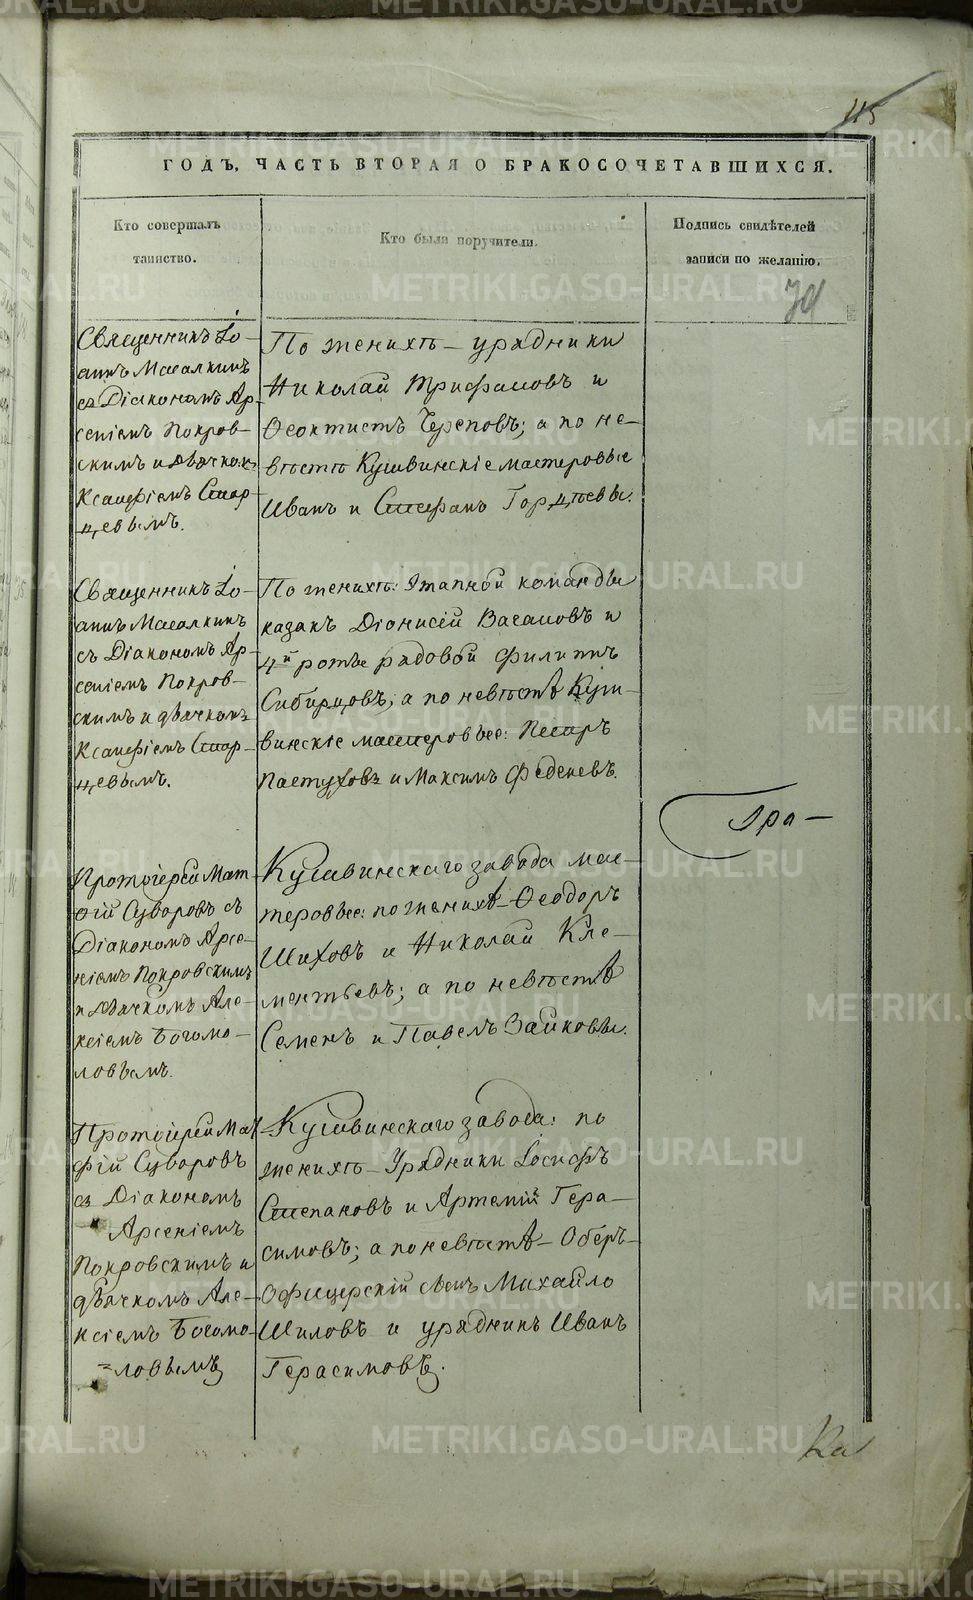 115
ГОДЪ, ЧАСТЬ ВТОРАЯ О БРАКОСОЧЕТАВШИХСЯ.
Кто совершалъ
таинство.
Кто были поручители.
Подпись свидѣтелей
записи по желанію.
Священникъ Іо-
аннъ Масалкинъ
съ Діакономъ Ар-
сеніемъ Покров-
скимъ и дьячкомъ
Ксанфіемъ Стар-
цевымъ.
По женихѣ – урядники
Николай Трифановъ и
Ѳеоктистъ Череповъ; а по не-
вѣстѣ Кушвинскіе мастеровые
Иванъ и Стефанъ Гордѣевы.
Священникъ Іо-
аннъ Масалкинъ
съ Діакономъ Ар-
сеніемъ Покров-
скимъ и дьячкомъ
Ксанфіемъ Стар-
цевымъ.
По женихѣ: Этапной команды
казакъ Діонисій Вагановъ и
4й роты рядовой Филиппъ
Сибирцовъ; а по невѣстѣ Куш-
винскіе мастеровые: Петръ
Пастуховъ и Максимъ Феденевъ.
Гра-
Протоіерей Мат-
ѳій Суворовъ съ
Діакономъ Арсе-
ніемъ Покровскимъ
и дьячкомъ Але-
ксіемъ Богомо-
ловымъ.
Кушвинскаго завода мас-
теровые: по женихѣ – Ѳеодоръ
Шиховъ и Николай Кле-
ментьевъ; а по невѣстѣ
Семенъ и Павелъ Зайковы.
Протоіерей Мат-
фій Суворовъ
съ Діакономъ
Арсеніемъ
Покровскимъ и
дьячкомъ Але-
ксіемъ Богомо-
ловымъ
Кушвинскаго завода: по
женихѣ – Урядники Іосифъ
Степановъ и Артемій Гера-
симовъ; а по невѣстѣ – Оберъ-
Офицерскій сынъ Михайло
Шиловъ и урядникъ Иванъ
Герасимовъ.
METRIKI.GASO-URAL.RU